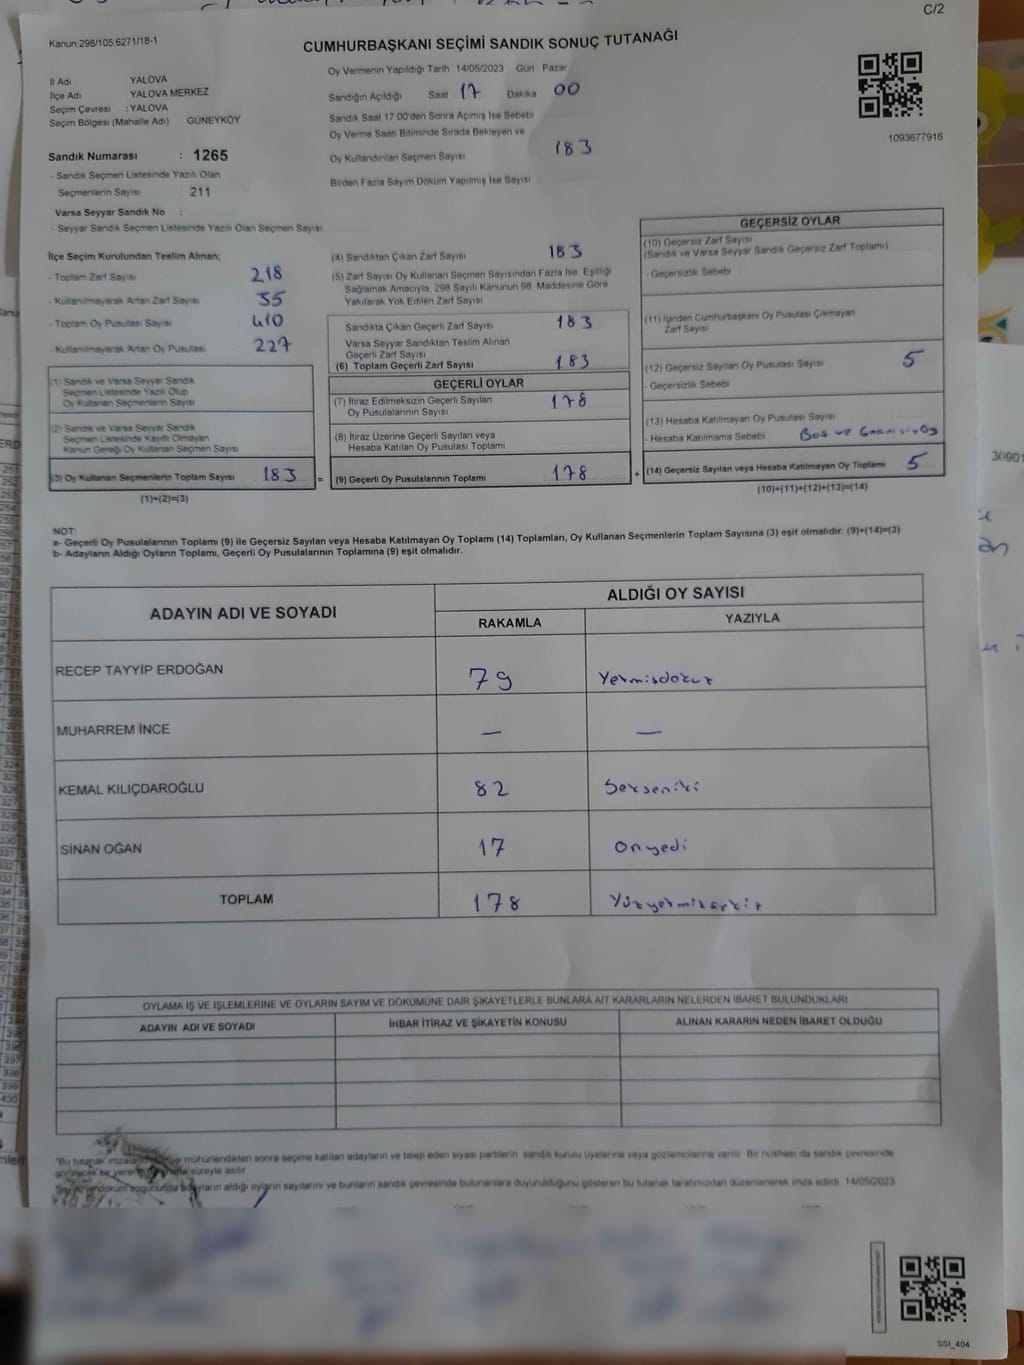 C/2
Kanun 298/105,6271/18-1
CUMHURBAŞKANI SEÇİMİ SANDIK SONUÇ TUTANAĞI
İl Adı YALOVA
İlçe Adı YALOVA MERKEZ
Seçim Çevresi : YALOVA
Seçim Bölgesi (Mahalle Adı) GÜNEYKÖY
Oy Vermenin Yapıldığı Tarih 14/05/2023 Gün Pazar
Sandığın Açıldığı Saat 17 Dakika 00
Sandık Saat 17.00'den Sonra Açımış İse Sebebi
Oy Verme Saati Bitiminde Sırada Bekleyen ve
Oy Kullandırılan Seçmen Sayısı 183
Birden Fazla Sayım Döküm Yapılmış İse Sayısı
1093677916
Sandık Numarası : 1265
- Sandık Seçmen Listesinde Yazılı Olan
Seçmenlerin Sayısı : 211
Varsa Seyyar Sandık No :
- Seyyar Sandık Seçmen Listesinde Yazılı Olan Seçmen Sayısı
İlçe Seçim Kurulundan Teslim Alınan;
- Toplam Zarf Sayısı 218
- Kullanılmayarak Artan Zarf Sayısı 35
- Toplam Oy Pusulası Sayısı 410
- Kullanılmayarak Artan Oy Pusulası 227
(1) Sandık ve Varsa Seyyar Sandık
Seçmen Listesinde Yazılı Olup
Oy Kullanan Seçmenlerin Sayısı
(2) Sandık ve Varsa Seyyar Sandık
Seçmen Listesinde Kayıtlı Olmayan
Kanun Gereği Oy Kullanan Seçmen Sayısı
(3) Oy Kullanan Seçmenlerin Toplam Sayısı 183
(1)+(2)=(3)
(4) Sandıktan Çıkan Zarf Sayısı 183
(5) Zarf Sayısı Oy Kullanan Seçmen Sayısından Fazla İse, Eşitliği
Sağlamak Amacıyla, 298 Sayılı Kanunun 98. Maddesine Göre
Yakılarak Yok Edilen Zarf Sayısı
Sandıkta Çıkan Geçerli Zarf Sayısı 183
Varsa Seyyar Sandıktan Teslim Alınan
Geçerli Zarf Sayısı
(6) Toplam Geçerli Zarf Sayısı 183
GEÇERLİ OYLAR
(7) İtiraz Edilmeksizin Geçerli Sayılan
Oy Pusulalarının Sayısı 178
(8) İtiraz Üzerine Geçerli Sayılan veya
Hesaba Katılan Oy Pusulası Toplamı
= (9) Geçerli Oy Pusulalarının Toplamı 178 +
GEÇERSİZ OYLAR
(10) Geçersiz Zarf Sayısı
(Sandık ve Varsa Seyyar Sandık Geçersiz Zarf Toplamı)
- Geçersizlik Sebebi
(11) İçinden Cumhurbaşkanı Oy Pusulası Çıkmayan
Zarf Sayısı
(12) Geçersiz Sayılan Oy Pusulası Sayısı 5
- Geçersizlik Sebebi
(13) Hesaba Katılmayan Oy Pusulası Sayısı
- Hesaba Katılmama Sebebi Boş ve
(14) Geçersiz Sayılan veya Hesaba Katılmayan Oy Toplamı 5
(10)+(11)+(12)+(13)=(14)
NOT:
a- Geçerli Oy Pusulalarının Toplamı (9) ile Geçersiz Sayılan veya Hesaba Katılmayan Oy Toplamı (14) Toplamları, Oy Kullanan Seçmenlerin Toplam Sayısına (3) eşit olmalıdır. (9)+(14)=(3)
b- Adayların Aldığı Oyların Toplamı, Geçerli Oy Pusulalarının Toplamına (9) eşit olmalıdır.
ADAYIN ADI VE SOYADI
ALDIĞI OY SAYISI
RAKAMLA YAZIYLA
RECEP TAYYİP ERDOĞAN 79 Yetmişdokuz
MUHARREM İNCE — —
KEMAL KILIÇDAROĞLU 82 Sekseniki
SİNAN OĞAN 17 Onyedi
TOPLAM 178 Yüzyetmişsekiz
OYLAMA İŞ VE İŞLEMLERİNE VE OYLARIN SAYIM VE DÖKÜMÜNE DAİR ŞİKAYETLERLE BUNLARA AİT KARARLARIN NELERDEN İBARET BULUNDUKLARI
ADAYIN ADI VE SOYADI İHBAR İTİRAZ VE ŞİKAYETİN KONUSU ALINAN KARARIN NEDEN İBARET OLDUĞU
"Bu tutanak mühürlendikten sonra seçime katılan adayların ve talep eden siyasi partilerin sandık kurulu üyelerine veya gözlemcilerine verilir. Bir nüshası da sandık çevresinde
süreyle asılır.
adayların aldığı oyların sayılarını ve bunların sandık çevresinde bulunanlara duyurulduğunu gösteren bu tutanak tarafımızdan düzenlenerek imza edildi. 14/05/2023
SSI_404